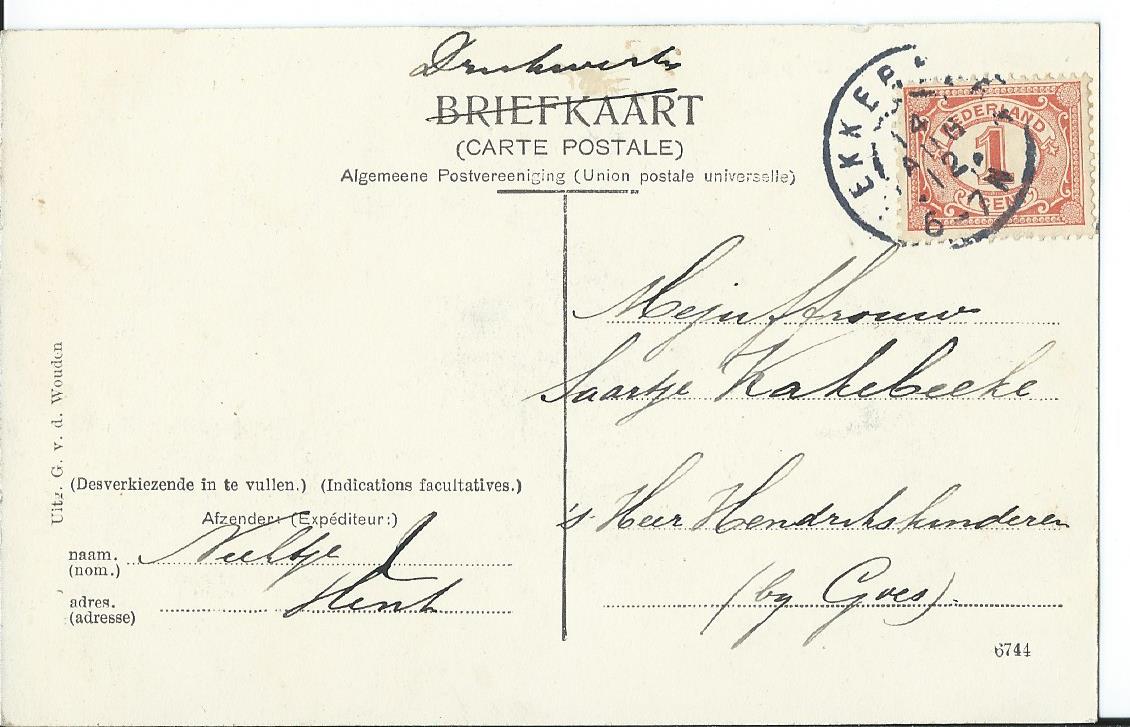 Drukwerk
BRIEFKAART
(CARTE POSTALE)
Algemeene Postvereeniging (Union postale universelle)
EKKER
14
AUG
12
6-7N
NEDERLAND
1
CENT
Mejuffrouw
Saartje Kakebeeke
's Heer Hendrikskinderen
(by Goes).
Uitg. G. v. d. Wouden
(Desverkiezende in te vullen.) (Indications facultatives.)
Afzender: (Expéditeur:)
naam.
(nom.)
adres.
(adresse)
6744